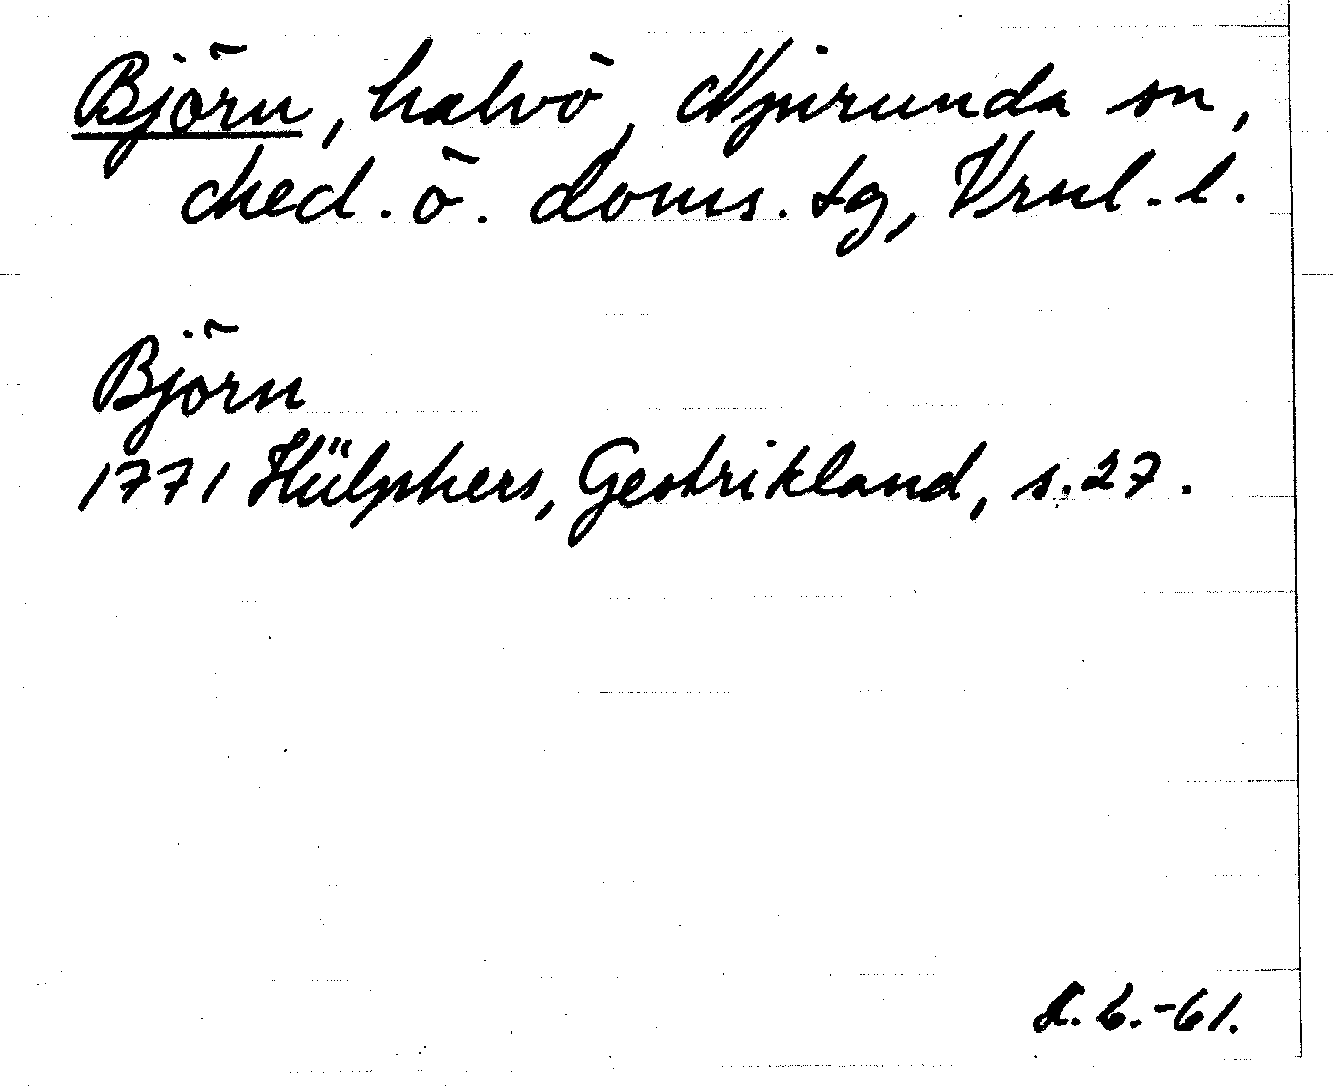 Björn, halvö, Njurunda sn,
Med. ö. doms. tg, Vrnl. l.
Björn
1771 Hülphers, Gestrikland, s. 27.
L. L. -61.